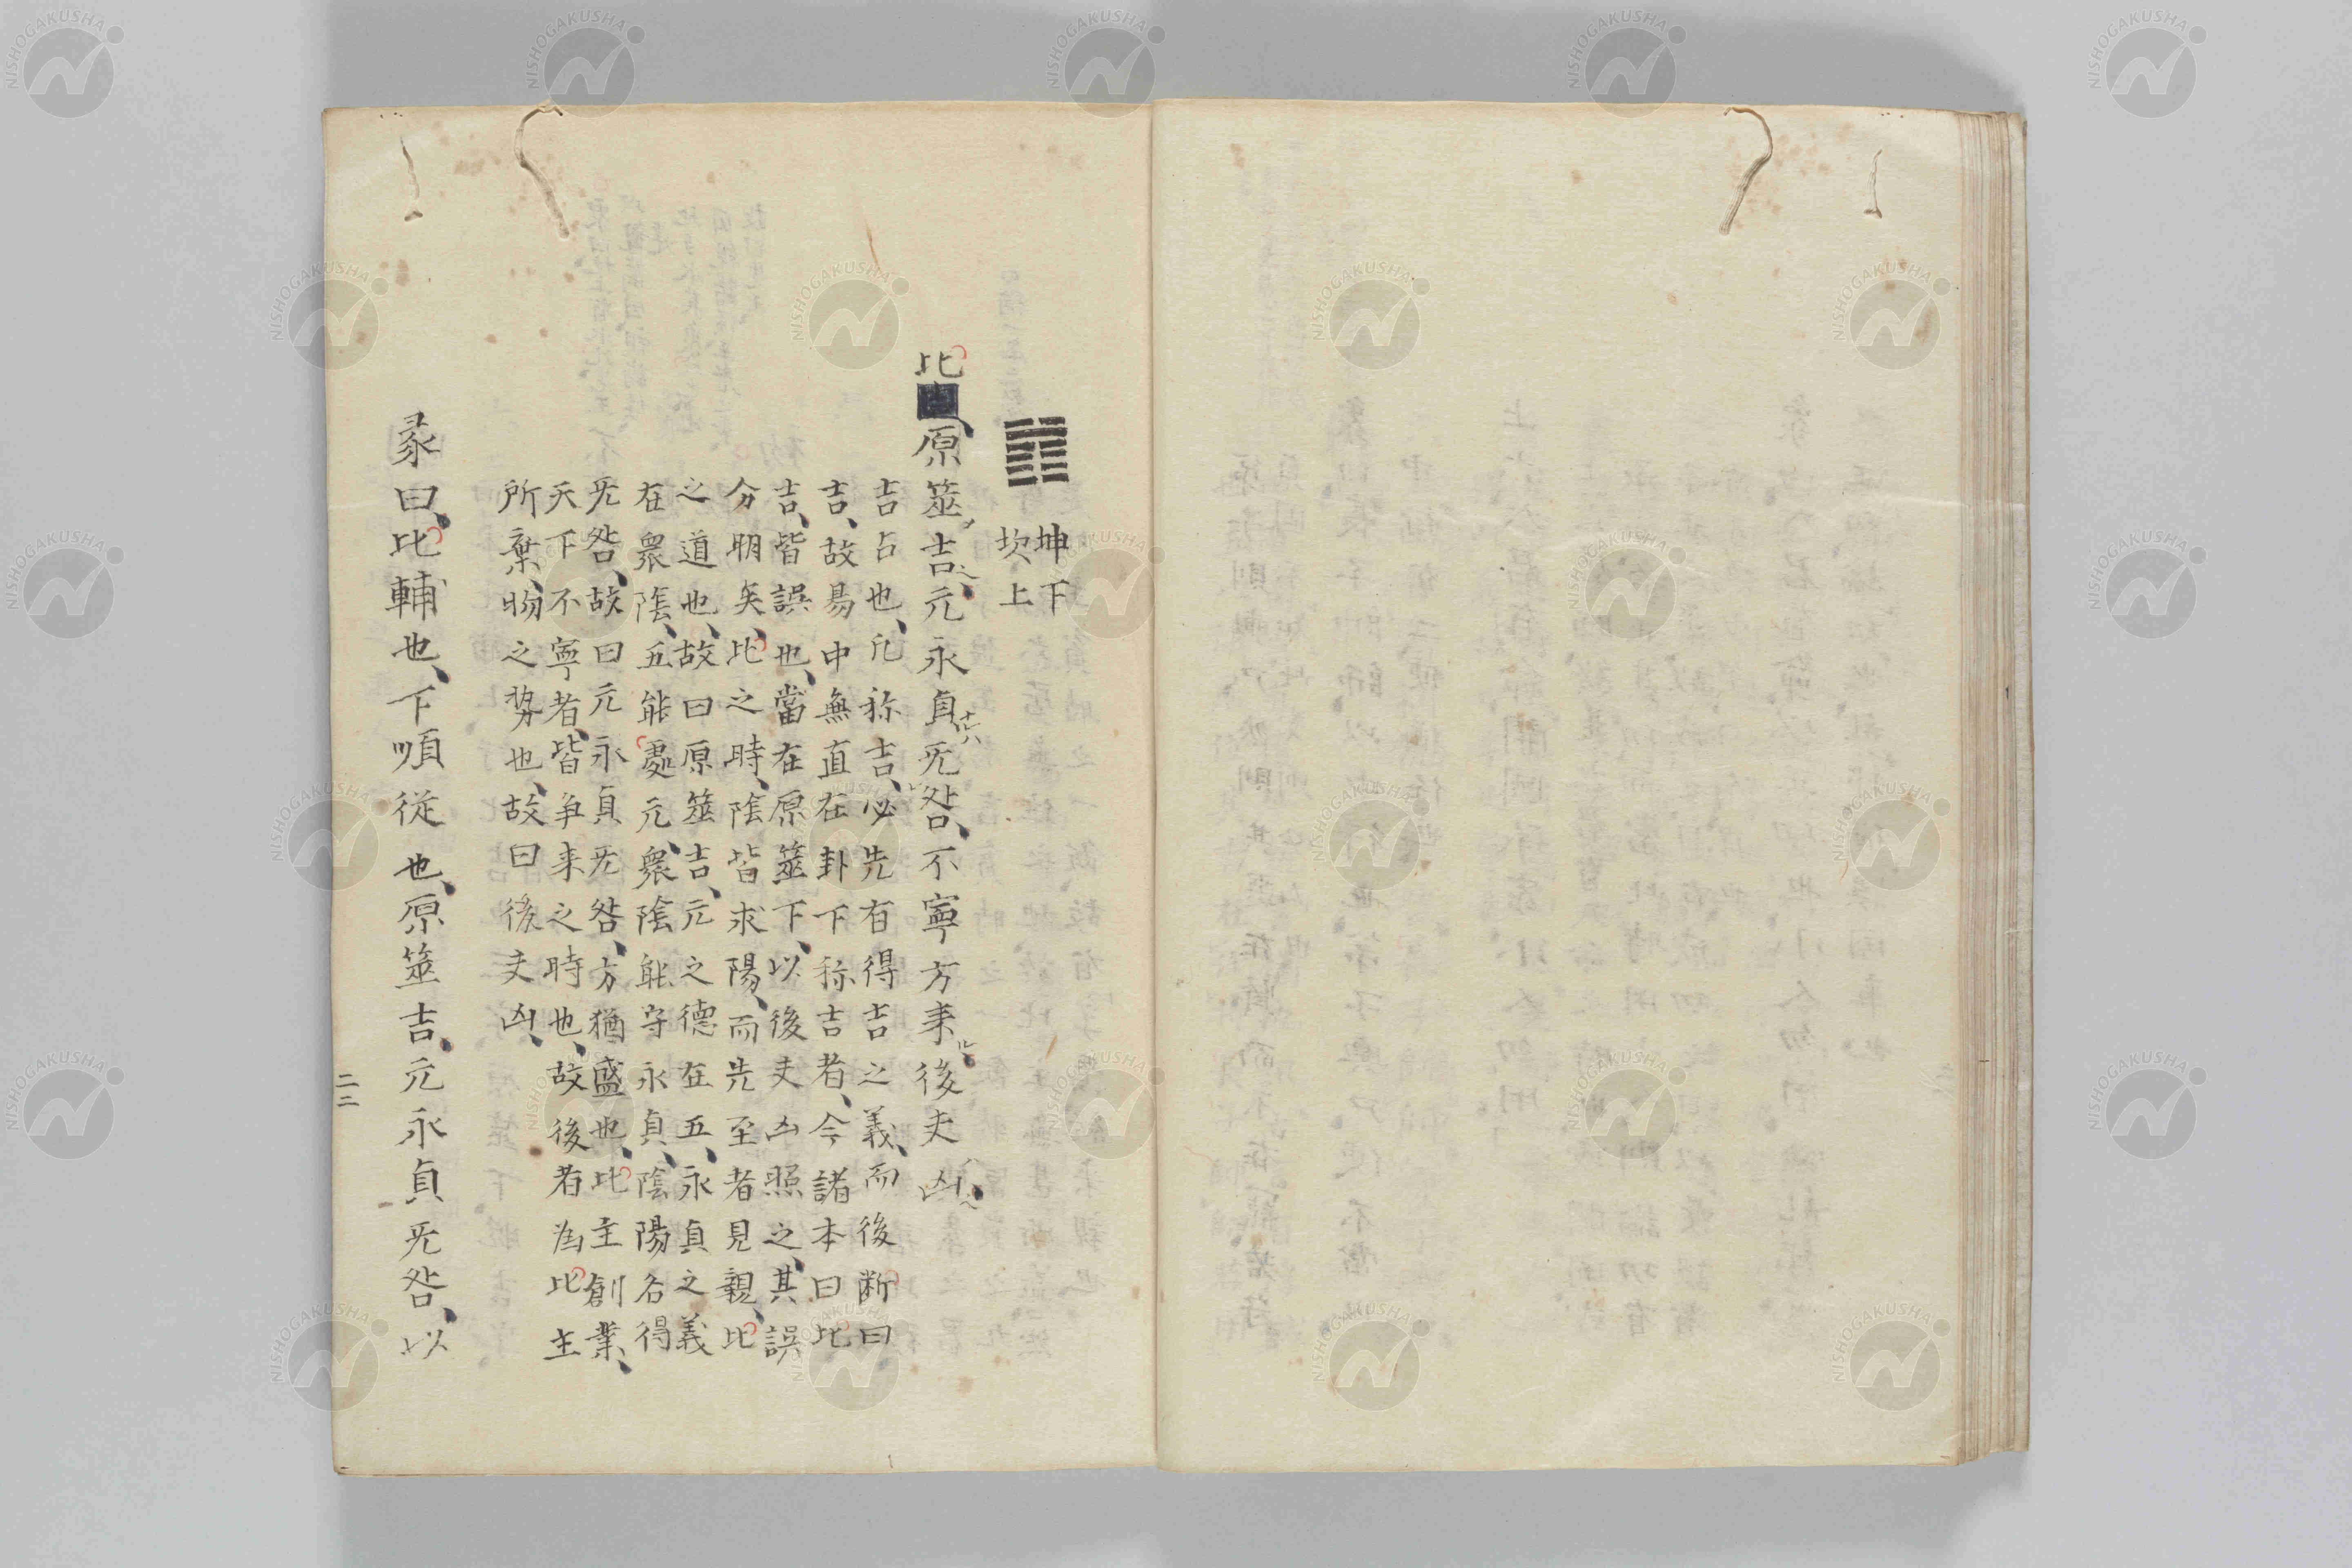 ䷇
坤下
坎上
比、原筮吉、元永貞无咎、不寧方来後夫凶、
吉占也、凡称吉、必先有得吉之義、而後断曰
吉、故易中無直在卦下称吉者、今諸本曰比
吉、皆誤也、當在原筮下、以後夫凶照之、其誤
分明矣、比之時、陰皆求陽、而先至者見親、比
之道也、故曰原筮吉、元之德在五、永貞之義
在衆陰、五能處元、衆陰能守永貞、陰陽各得
无咎、故曰元永貞无咎、方猶盛也、比主創業、
天下不寧者、皆争来之時也、故後者為比主
所棄、物之勢也、故曰後夫凶、
彖曰、比輔也、下順従也、原筮吉、元永貞无咎、以
二二
NISHOGAKUSHA